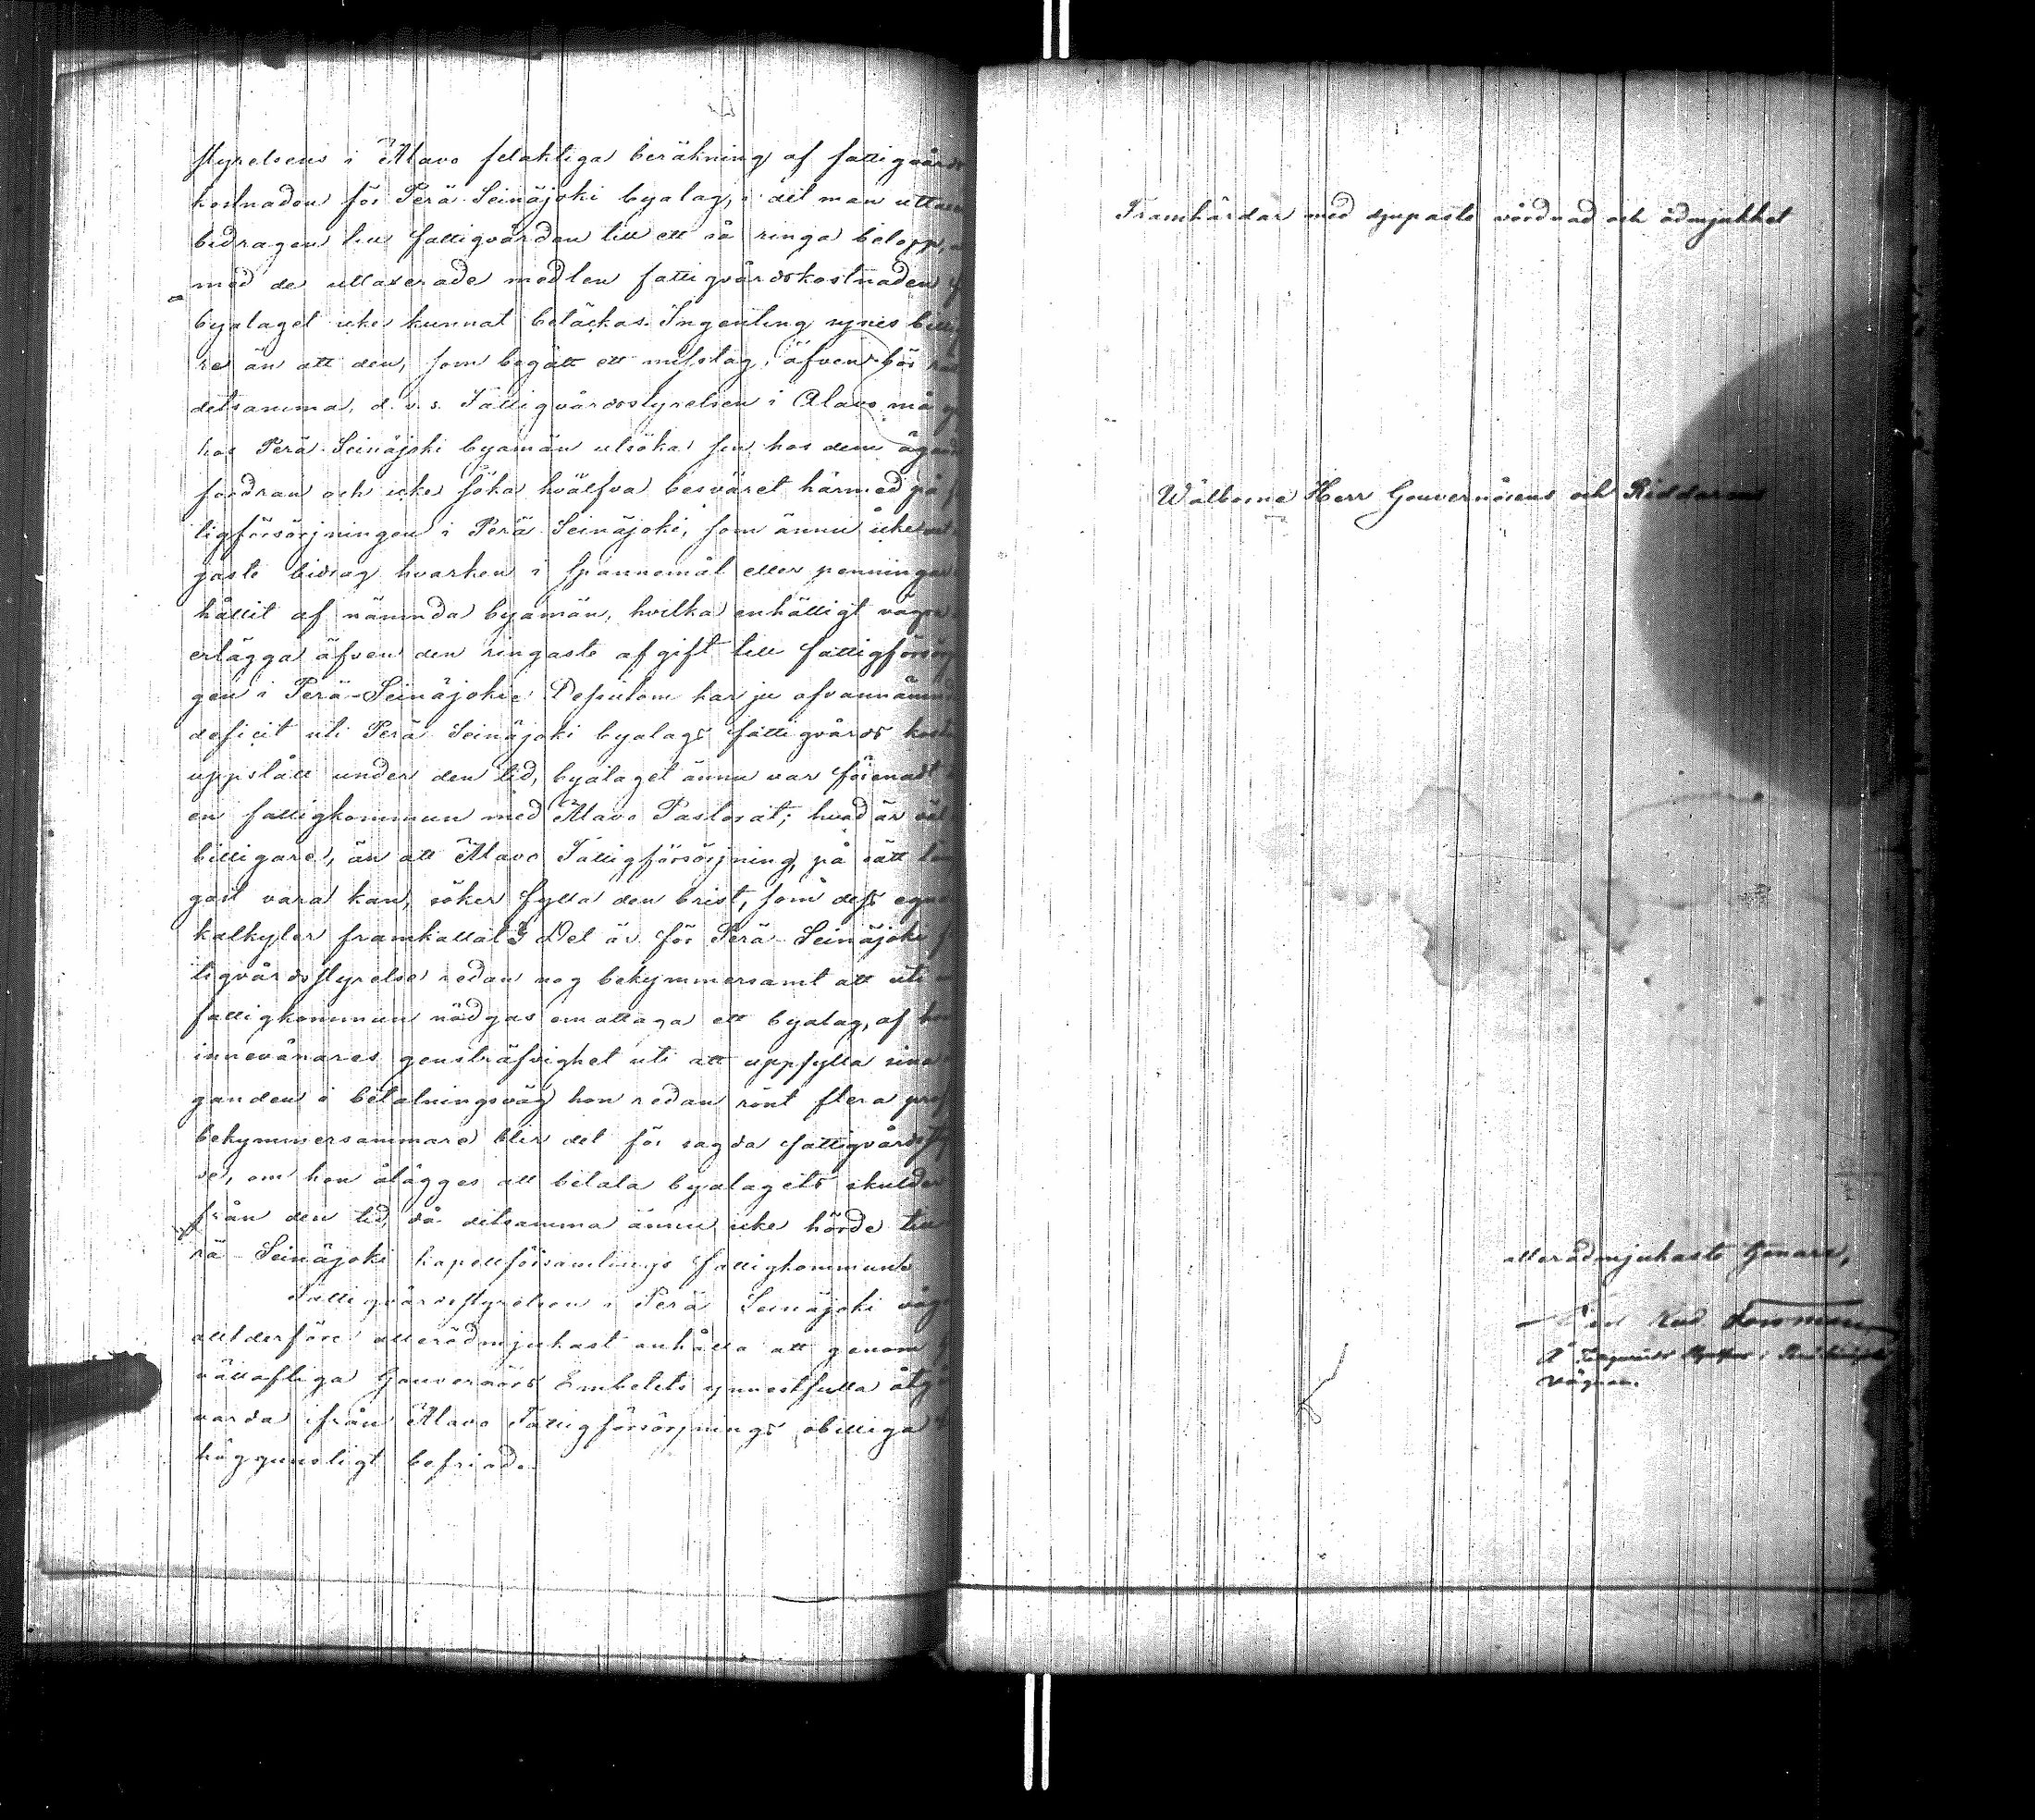 styrelsens i Alavo felaktiga beräkning af fattigvårds
kostnaden för Perä Seinäjoki byalag, i det man uttaxe
bidragen till fattigvården till ett så ringa belopp, a
med de uttaxerade medlen fattigvårdskostnaden
byalaget icke kunnat betäckas. Ingenting synes billig
re än att den, som begått ett misstag, äfven bör
detsamma, d. v. s. Fattigvårdsstyrelsen i Alavo må
hos Perä Seinäjoki byamän utsöka sin hos dem ägande
fordran och icke söka hvälfva besväret härmed på f
tigförsörjningen i Perä Seinäjoki, som ännu icke
gaste bidrag hvarken i spannemål eller penningar
hållit af nämnda byamän, hvilka enhälligt vägra
erlägga äfven den ringaste afgift till fattigförsörj
gen i Perä-Seinäjoki. Dessutom har ju ofvannämnde
deficit uti Perä Seinäjoki byalags fattigvårds kost
uppstått under den tid, byalaget ännu var förenadt
en fattigkommun med Alavo Pastorat; hvad är
billigare, än att Alavo Fattigförsörjning, på sätt
gast vara kan, söker fylla den brist, som dess egna
kalkyler framkallat? Det är för Perä Seinäjoki f
tigvårdsstyrelse redan nog bekymmersamt att uti
fattigkommun nödgas emottaga ett byalag, af
innevånares gensträfvighet uti att uppfylla sina
ganden i betalningsväg hon redan rönt flera prof
bekymmersammare blir det för sagda fattigvårdssty
se, om hon ålägges att betala byalagets skulder
från den tid, då detsamma ännu icke hörde till
rä Seinäjoki kapellförsamlings fattigkommun.
Fattigvårdsstyrelsen i Perä Seinäjoki våga
alltderföre allerödmjukast anhålla att genom
rättafliga Gouvernörs Embetets ynnestfulla åtgä
varda ifrån Alavo Fattigförsörjnings obilliga
höggunstligt befriade.
Framhärdar med djupaste vördnad och ödmjukhet
Wälborne Herr Gouvernörens och Riddarens
allerödmjukaste tjenare,
Å Fattigvårds styrelsens i Perä Seinäjoki
vägnar.